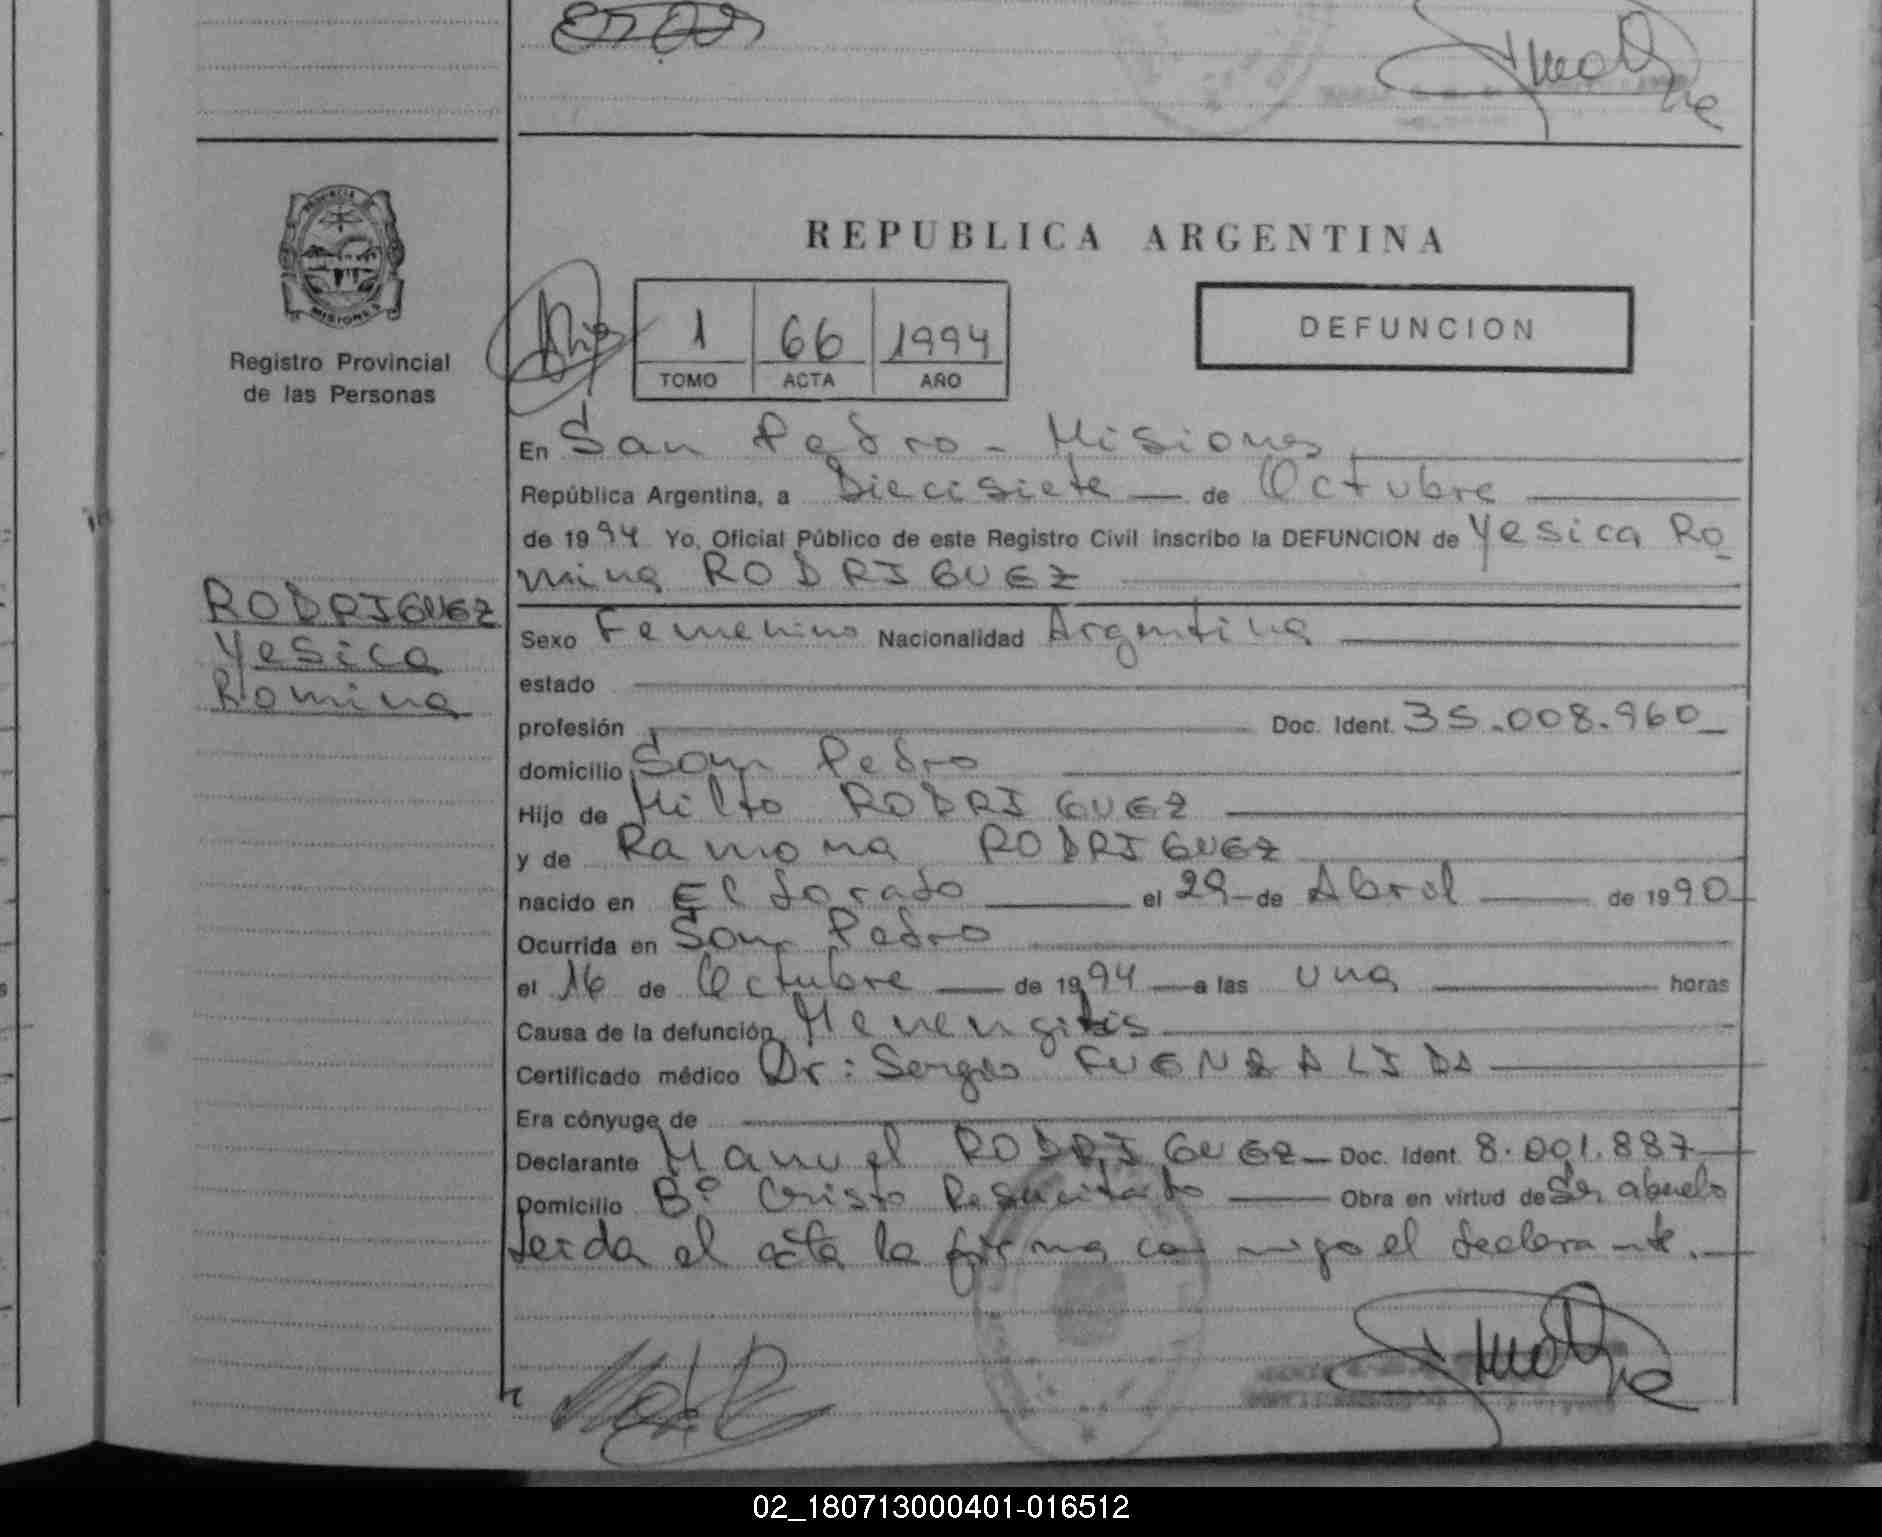 REPUBLICA ARGENTINA
PROVINCIA
MISIONES
Registro Provincial
de las Personas
1 66 1994
TOMO ACTA AÑO
DEFUNCION
En San Pedro - Misiones
República Argentina, a Diecisiete de Octubre
de 1994 Yo, Oficial Público de este Registro Civil inscribo la DEFUNCION de Yesica Ro
mina RODRIGUEZ
RODRIGUEZ
Yesica
Romina
Sexo Femenino Nacionalidad Argentina
estado
profesión Doc. Ident. 35.008.960
domicilio San Pedro
Hijo de Milto RODRIGUEZ
y de Ramona RODRIGUEZ
nacido en Eldorado el 29 de Abril de 1990
Ocurrida en San Pedro
el 16 de Octubre de 1994 a las una horas
Causa de la defunción Menengitis
Certificado médico Dr: Sergio FUENZALIDA
Era cónyuge de
Declarante Manuel RODRIGUEZ Doc. Ident. 8.001.887
Domicilio Bº Cristo Resucitado Obra en virtud de Ser abuelo
Leida el acta la firma conmigo el declarante.
02_180713000401-016512